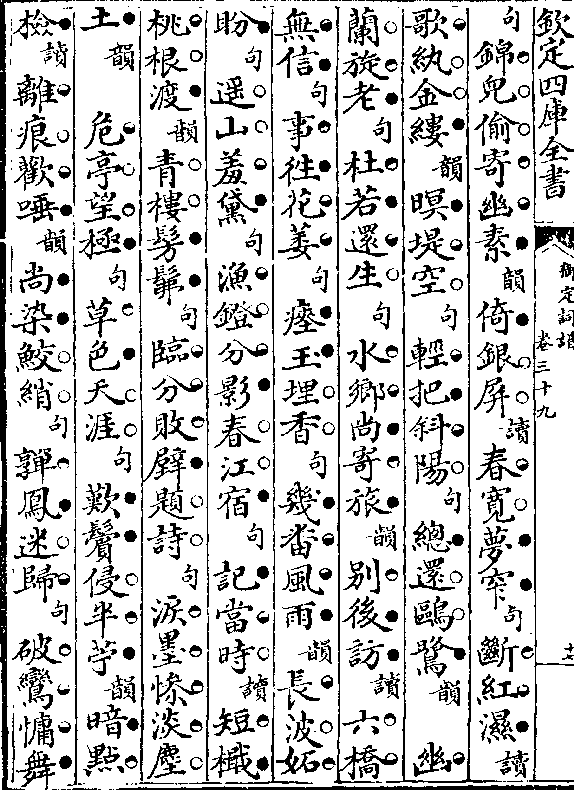 欽定四庫全書
御定詞譜
卷三十九
十七
句錦兒偷寄幽素韻倚銀屏讀春寬夢窄句斷紅濕讀
歌紈金縷韻暝堤空句輕把斜陽句總還鷗鷺韻幽
蘭旋老句杜若還生句水鄉尚寄旅韻别後訪讀六橋
無信句事徃花萎句瘞玉埋香句幾畨風雨韻長波妬
盼句遥山羞黛句漁鐙分影春江宿句記當時讀短檝
桃根渡韻青樓髣髴句臨分敗壁題詩句淚墨慘淡塵
土韻危亭望極句草色天涯句歎鬢侵半苧韻暗點
檢讀離痕歡唾韻尚染鮫綃句嚲鳳迷歸句破鸞慵舞